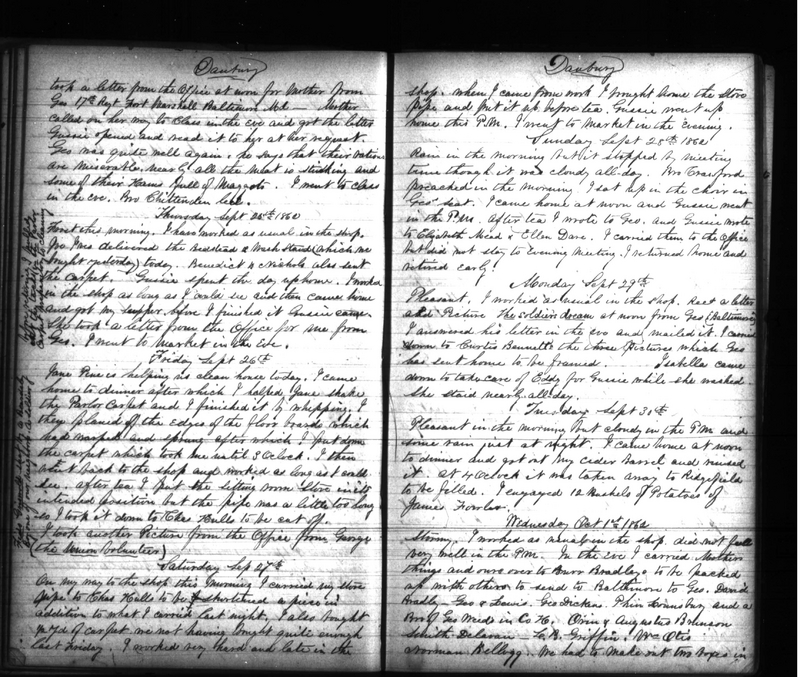 Danbury
took a letter from the Office at noon for Mother from
Geo 17th Regt Fort Marshall Baltimore Md — Mother
called on her way to class in the eve and got the letter
Gussie opened and read it to her at her request.
Geo was quite well again. he says that their rations
are miserable, nearly all the meat is stinking and
some of their Hams full of Maggots. I went to class
in the eve. Bro Chittenden led.
Thursday Sept 25th 1862
Frost this morning. I have worked as usual in the shop.
Ives delivered the Bedstead & Wash Stand (which we
bought yesterday) today. Benedict & Nichols also sent
the carpet. Gussie spent the day up home. I worked
in the shop as long as I could see and then came home
and got my supper, before I finished it Gussie came.
She took a letter from the Office for me from
Geo. I went to Market in the Eve.
Friday Sept 26th
Jane is helping us clean house today. I came
home to dinner after which I helped Jane shake
the Parlor Carpet and I finished it by whipping. I
then planed of the edges of the floor boards which
had warped and sprung after which I put down
the carpet which took me until 3 O'clock. I then
went back to the shop and worked as long as I could
see. after tea I put the sitting room Stove in its
intended position but the pipe was a little too long
so I took it down to Chas Hulls to be cut off.
I took another Picture from the Office from George
(the Union Volunteer)
Saturday Sep 27th
On my way to the shop this Morning I carried my stove
pipe to Chas Hulls to be shortened a piece in
addition to what I carried last night. I also bought
yd of carpet we not having bought quite enough
last Friday. I worked very hard and late in the
Danbury
shop. when I came from work I brought home the Stove
pipe and put it up before tea. Gussie went up
home this P.M. I went to Market in the Evening.
Sunday Sept 28th 1862
Rain in the morning but it stopped by meeting
time though it was cloudy all day. Bro Crawford
preached in the morning. I sat up in the choir in
Geo' seat. I came home at noon and Gussie went
in the P.M. After tea I wrote to Geo. and Gussie wrote
to Elizabeth Mead & Ellen Dare. I carried them to the Office
but did not stay to Evening Meeting. I returned home and
retired early
Monday Sept 29th
Pleasant. I worked as usual in the shop. Rec'd a letter
and Picture The soldiers dream at noon from Geo (Baltimore)
I answered his letter in the eve and mailed it. I carried
down to Curtis Bennetts the three Pictures which Geo
has sent home to be framed. Isabella came
down to take care of Eddy for Gussie while she washed.
She staid nearly all day.
Tuesday Sept 30th
Pleasant in the morning but cloudy in the P.M. and
some rain just at night. I came home at noon
to dinner and got out my cider barrel and rinsed
it. at 4 O'clock it was taken away to Ridgefield
to be filled. I engaged 12 Bushels of Potatoes of
James Fowler.
Wednesday Oct 1st 1862
Stormy. I worked as usual in the shop. did not feel
very well in the P.M. In the eve I carried Mothers
things and ours over to Burr Bradleys to be packed
up with others to send to Baltimore to Geo. David
Bradley — Geo & Lewis. Geo Dickens. Phin Lounsbury and a
Bro of Geo Weed in Co H. Orin & Augustus Bronson
Smith Delavan — Griffin. Wm Otis
Norman Kellogg. We had to make out two boxes in